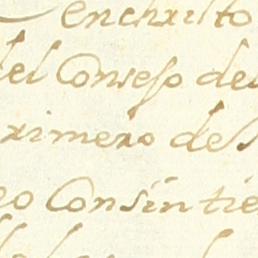 enchristo
del Consejo del
rimero del
Consintie